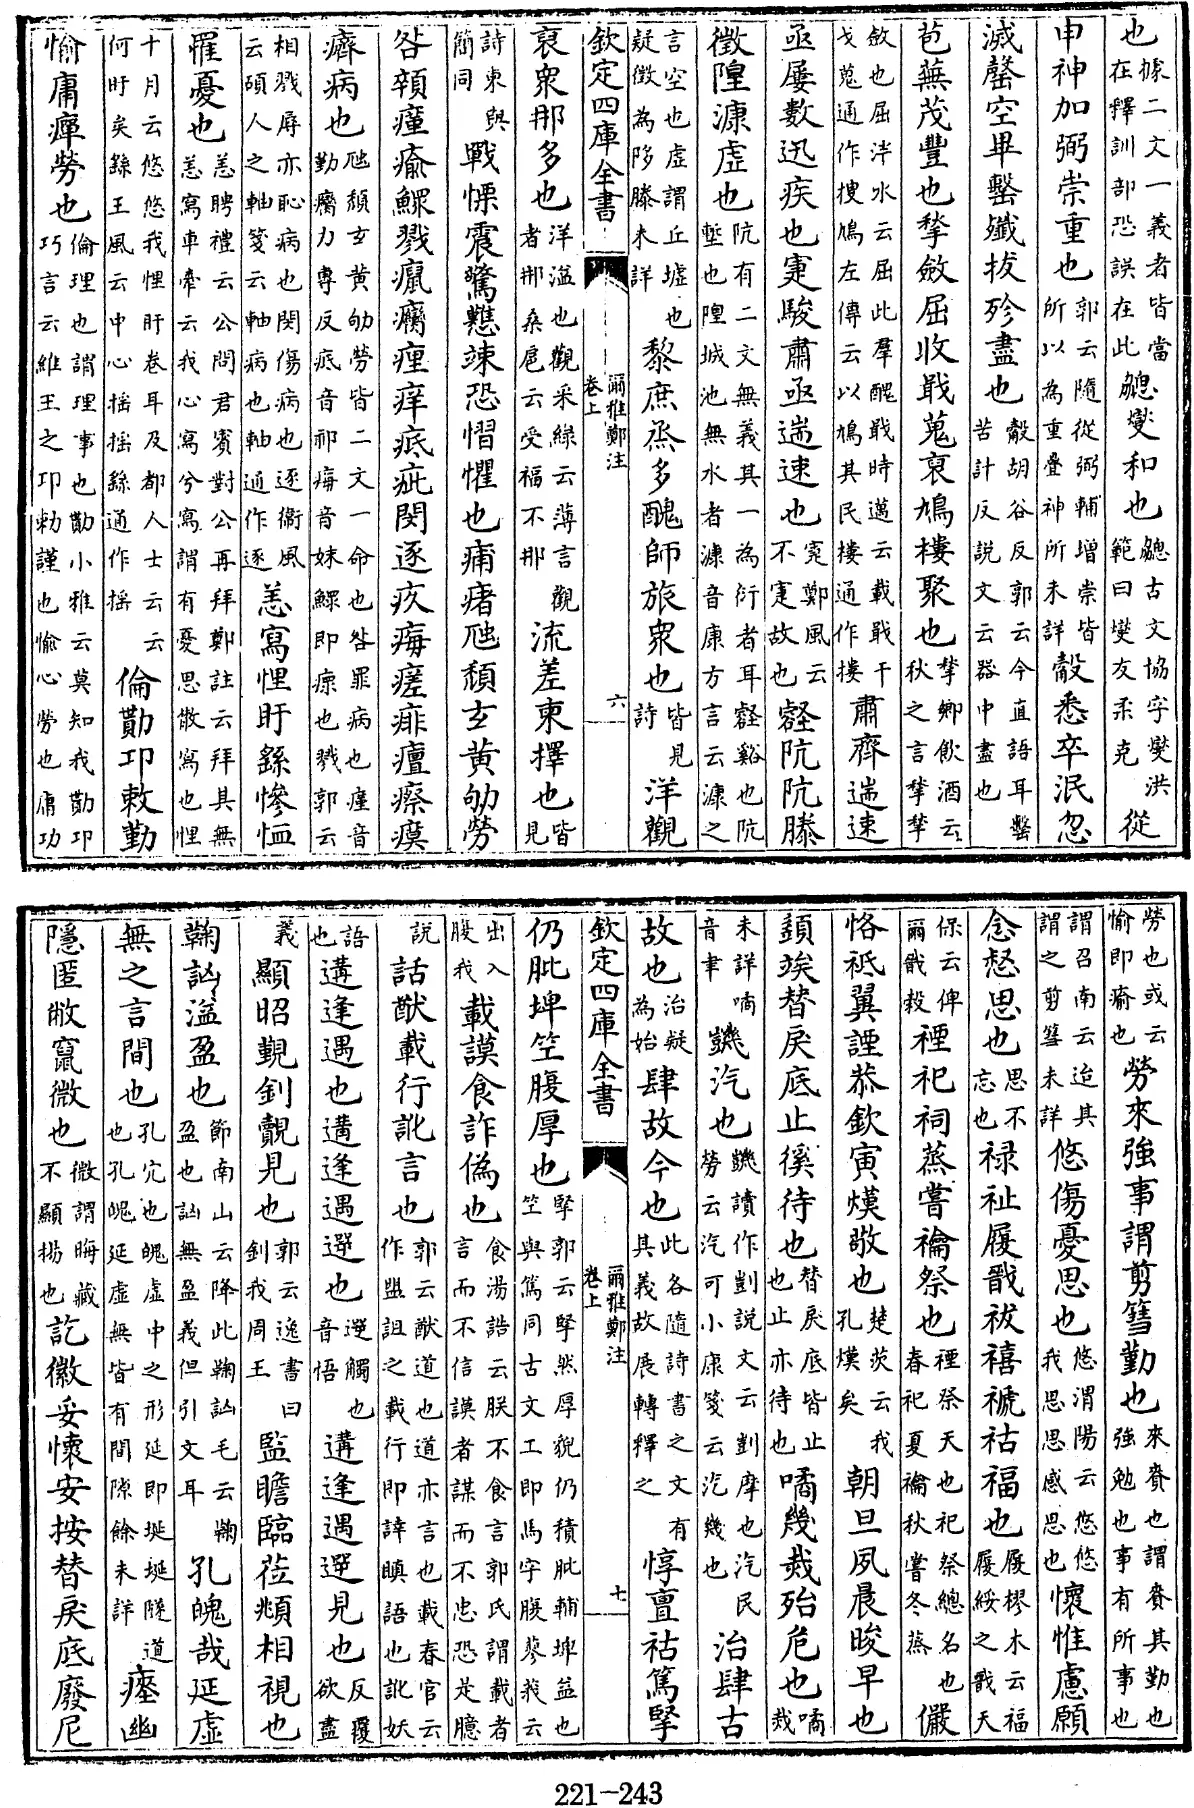 也據二文一義者皆當在釋訓部恐誤在此勰燮和也勰古文協字燮洪範曰燮友柔克從
申神加弼崇重也郭云隨從弼輔增崇皆所以為重疊神所未詳縠悉卒泯忽
滅罄空畢罊殲拔殄盡也縠胡谷反郭云今直語耳罊苦計反說文云器中盡也
苞蕪茂豐也揫斂屈收戢蒐裒鳩樓聚也揫鄉飲酒云秋之言揫揫
斂也屈泮水云屈此羣醜戢時邁云載戢干戈蒐通作捜鳩左傳云以鳩其民樓通作摟肅齊遄速
亟屢數迅疾也寁駿肅亟遄速也寁鄭風云不寁故也壑阬阬滕
徵隍漮虛也阬有二文無義其一為衍者耳壑谿也阬塹也隍城池無水者漮音康方言云漮之
言空也虛謂丘墟也疑徵為陊滕未詳黎庶烝多醜師旅眾也皆見詩洋觀
欽定四庫全書 爾雅鄭注 卷上 六
裒眾那多也洋溢也觀采綠云薄言觀者那桑扈云受福不那流差柬擇也皆見
詩柬與簡同戰慄震驚戁竦恐慴懼也痡瘏虺頹玄黃劬勞
咎顇瘽瘉鰥戮癙癵㾖痒疷疵閔逐疚痗瘥痱癉瘵瘼
癠病也虺頹玄黃劬勞皆二文一命也咎罪病也瘽音勤癵力專反疷音祁痗音妹鰥即瘝也戮郭云
相戮辱亦恥病也閔傷病也逐衞風云碩人之軸箋云軸病也軸通作逐恙寫悝盱繇慘恤
罹憂也恙聘禮云公問君賓對公再拜鄭註云拜其無恙寫車舝云我心寫兮寫謂有憂思散寫也悝
十月云悠悠我悝盱卷耳及都人士云云何盱矣繇王風云中心搖搖繇通作搖倫勩卭敕勤
愉庸癉勞也倫理也謂理事也勩小雅云莫知我勩卭巧言云維王之卭勑謹也愉心勞也庸功
勞也或云愉即瘉也勞來強事謂剪篲勤也來賚也謂賚其勤也強勉也事有所事也
謂召南云迨其謂之剪篲未詳悠傷憂思也悠渭陽云悠悠我思思感思也懷惟慮願
念惄思也思不忘也祿祉履戩祓禧禠祜福也履樛木云福履綏之戩天
保云俾爾戩穀禋祀祠蒸嘗禴祭也禋祭天也祀祭總名也春祀夏禴秋嘗冬蒸儼
恪祗翼諲恭欽寅熯敬也楚茨云我孔熯矣朝旦夙晨晙早也
頷竢替戾底止徯待也替戾底皆止也止亦待也噊幾烖殆危也噊烖
未詳噊音聿䜈汽也䜈讀作剴說文云剴摩也汽民勞云汽可小康箋云汽幾也治肆古
故也治疑為始肆故今也此各隨詩書之文有其義故展轉釋之惇亶祜篤掔
欽定四庫全書 爾雅鄭注 卷上 七
仍肶埤竺腹厚也掔郭云掔然厚貌仍積肶輔埤益也竺與篤同古文工即馬字腹蓼莪云
出入腹我載謨食詐偽也食湯誥云朕不食言郭氏謂載者言而不信謨者謀而不忠恐是臆
說話猷載行訛言也郭云猷道也道亦言也載春官云作盟詛之載行即諱瞋語也訛妖
語也遘逢遇也遘逢遇遻也遻觸也音悟遘逢遇遻見也反覆欲盡
義顯昭覲釗覿見也郭云逸書曰釗我周王監瞻臨蒞頫相視也
鞠訩溢盈也節南山云降此鞠訩毛云鞠盈也訩無盈義但引文耳孔魄哉延虛
無之言間也孔穴也魄虛中之形延即埏埏隧道也孔魄延虛無皆有間隙餘未詳瘞幽
隱匿蔽竄微也微謂晦藏不顯揚也訖徽妥懷安按替戾底廢尼
221-243